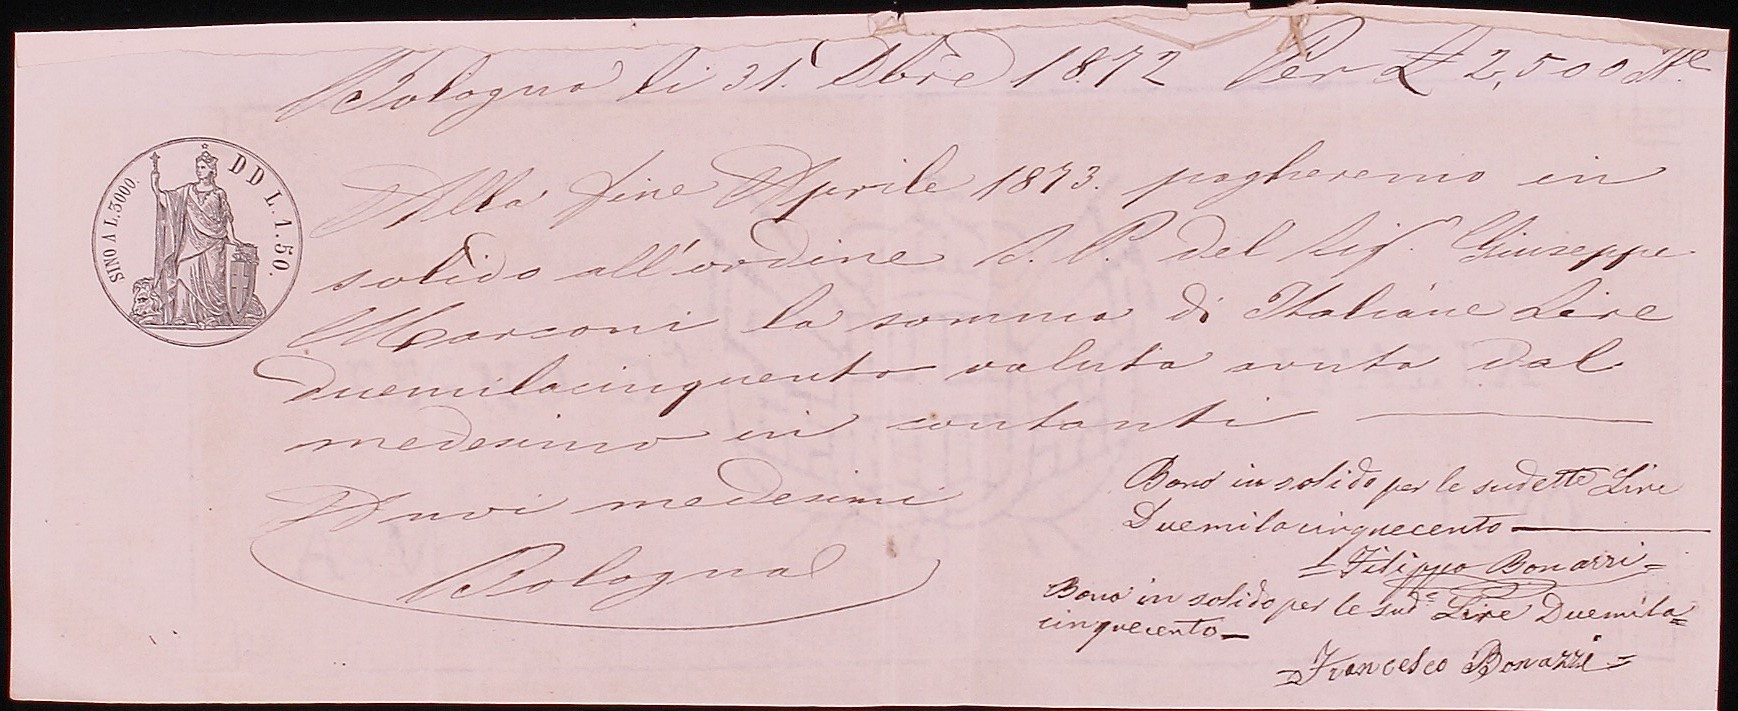 Bologna li 31. Dbre 1872 Per £ 2,500 Ite
SINO A L.3000.
DD L.1.50.
Alla fine Aprile 1873. pagheremo in
solido all'ordine S. P. del Sig. Giuseppe
Marconi la somma di Italiane Lire
duemilacinquento valuta avuta dal
medesimo in contanti
A noi medesimi
Bologna
Bono in solido per le sudette Lire
Duemilacinquecento
Filippo Bonazzi
Bono in solido per le sude Lire Duemila=
cinquecento
Francesco Bonazzi